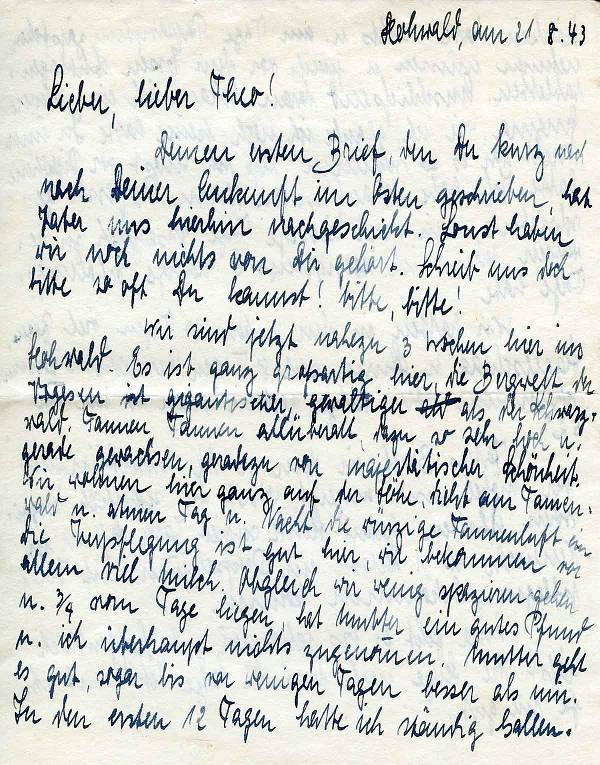 Hohwald, am 21.8.43
Lieber, lieber Theo!
Deinen ersten Brief, den Du kurz nach
nach Deiner Ankunft im Osten geschrieben, hat
Vater uns hierhin nachgeschickt. Sonst haben
wir noch nichts von Dir gehört. Schreib uns doch
bitte so oft Du kannst! bitte, bitte!
Wir sind jetzt nahezu 3 Wochen hier im
Hohwald. Es ist ganz großartig hier, die Bergwelt der
Vogesen ist gigantischer, gewaltiger als der Schwarz-
wald. Tannen Tannen allüberall, dazu so sehr hoch u.
gerade gewachsen, geradezu von majestätischer Schönheit.
Wir wohnen hier ganz auf der Höhe, dicht am Tannen-
wald u. atmen Tag u. Nacht die würzige Tannenluft ein
die Verpflegung ist gut hier, wir bekommen vor
allem viel Milch. Obgleich wir wenig spazieren gehen
u. 3/4 vom Tage liegen, hat Mutter ein gutes Pfund
u. ich überhaupt nichts zugenommen. Mutter geht
es gut, sogar bis vor wenigen Tagen besser als mir.
In den ersten 12 Tagen hatte ich ständig Gallen-